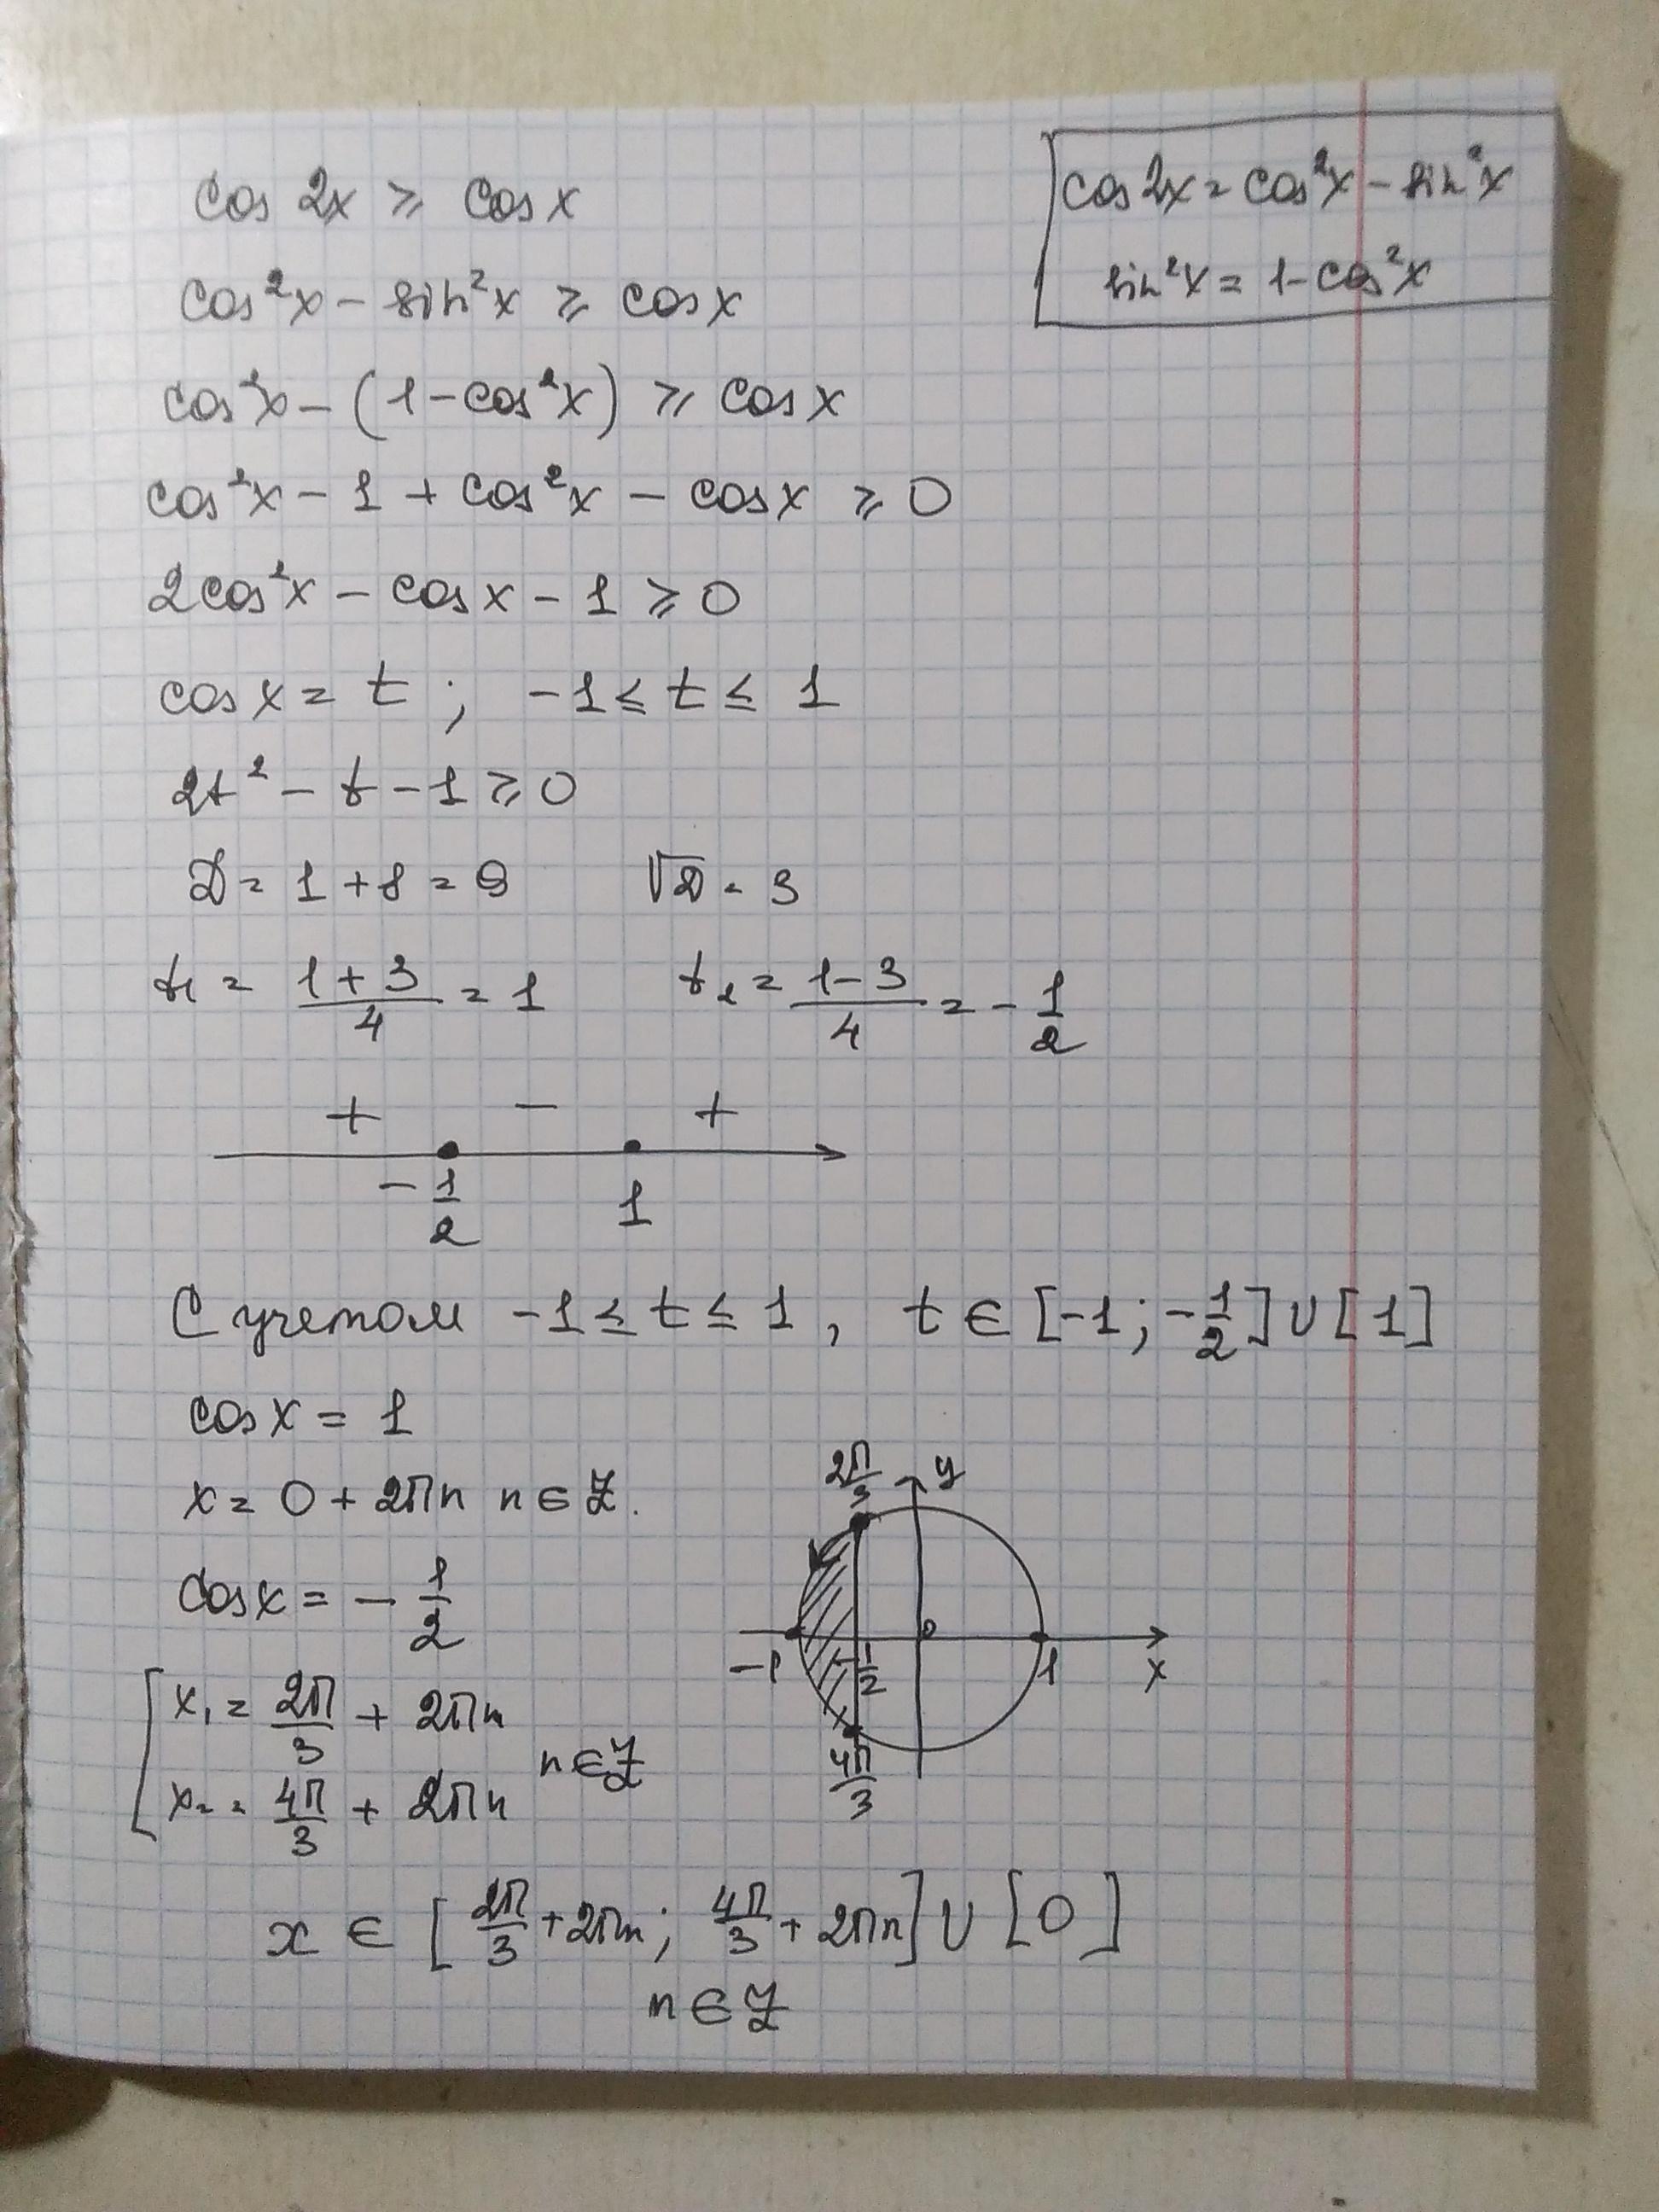 cos 2x ⩾ cos x
cos2x = cos²x - sin²x
sin²x = 1-cos²x
cos²x - sin²x ⩾ cos x
cos²x - (1-cos²x) ⩾ cos x
cos²x - 1 + cos²x - cos x ⩾ 0
2cos²x - cos x - 1 ⩾ 0
cos x = t ; -1 ≤ t ≤ 1
2t² - t - 1 ⩾ 0
D = 1 + 8 = 9 √D = 3
t₁ = (1+3)/4 = 1 t₂ = (1-3)/4 = - 1/2
+ - +
- 1/2 1
С учетом -1 ≤ t ≤ 1, t ∈ [-1; -1/2] ∪ [1]
cos x = 1
x = 0 + 2πn n ∈ Z.
cos x = - 1/2
x₁ = 2π/3 + 2πn
x₂ = 4π/3 + 2πn n ∈ Z
2π/3 y
-1 -1/2 0 1 x
4π/3
x ∈ [2π/3 + 2πn; 4π/3 + 2πn] ∪ [0]
n ∈ Z